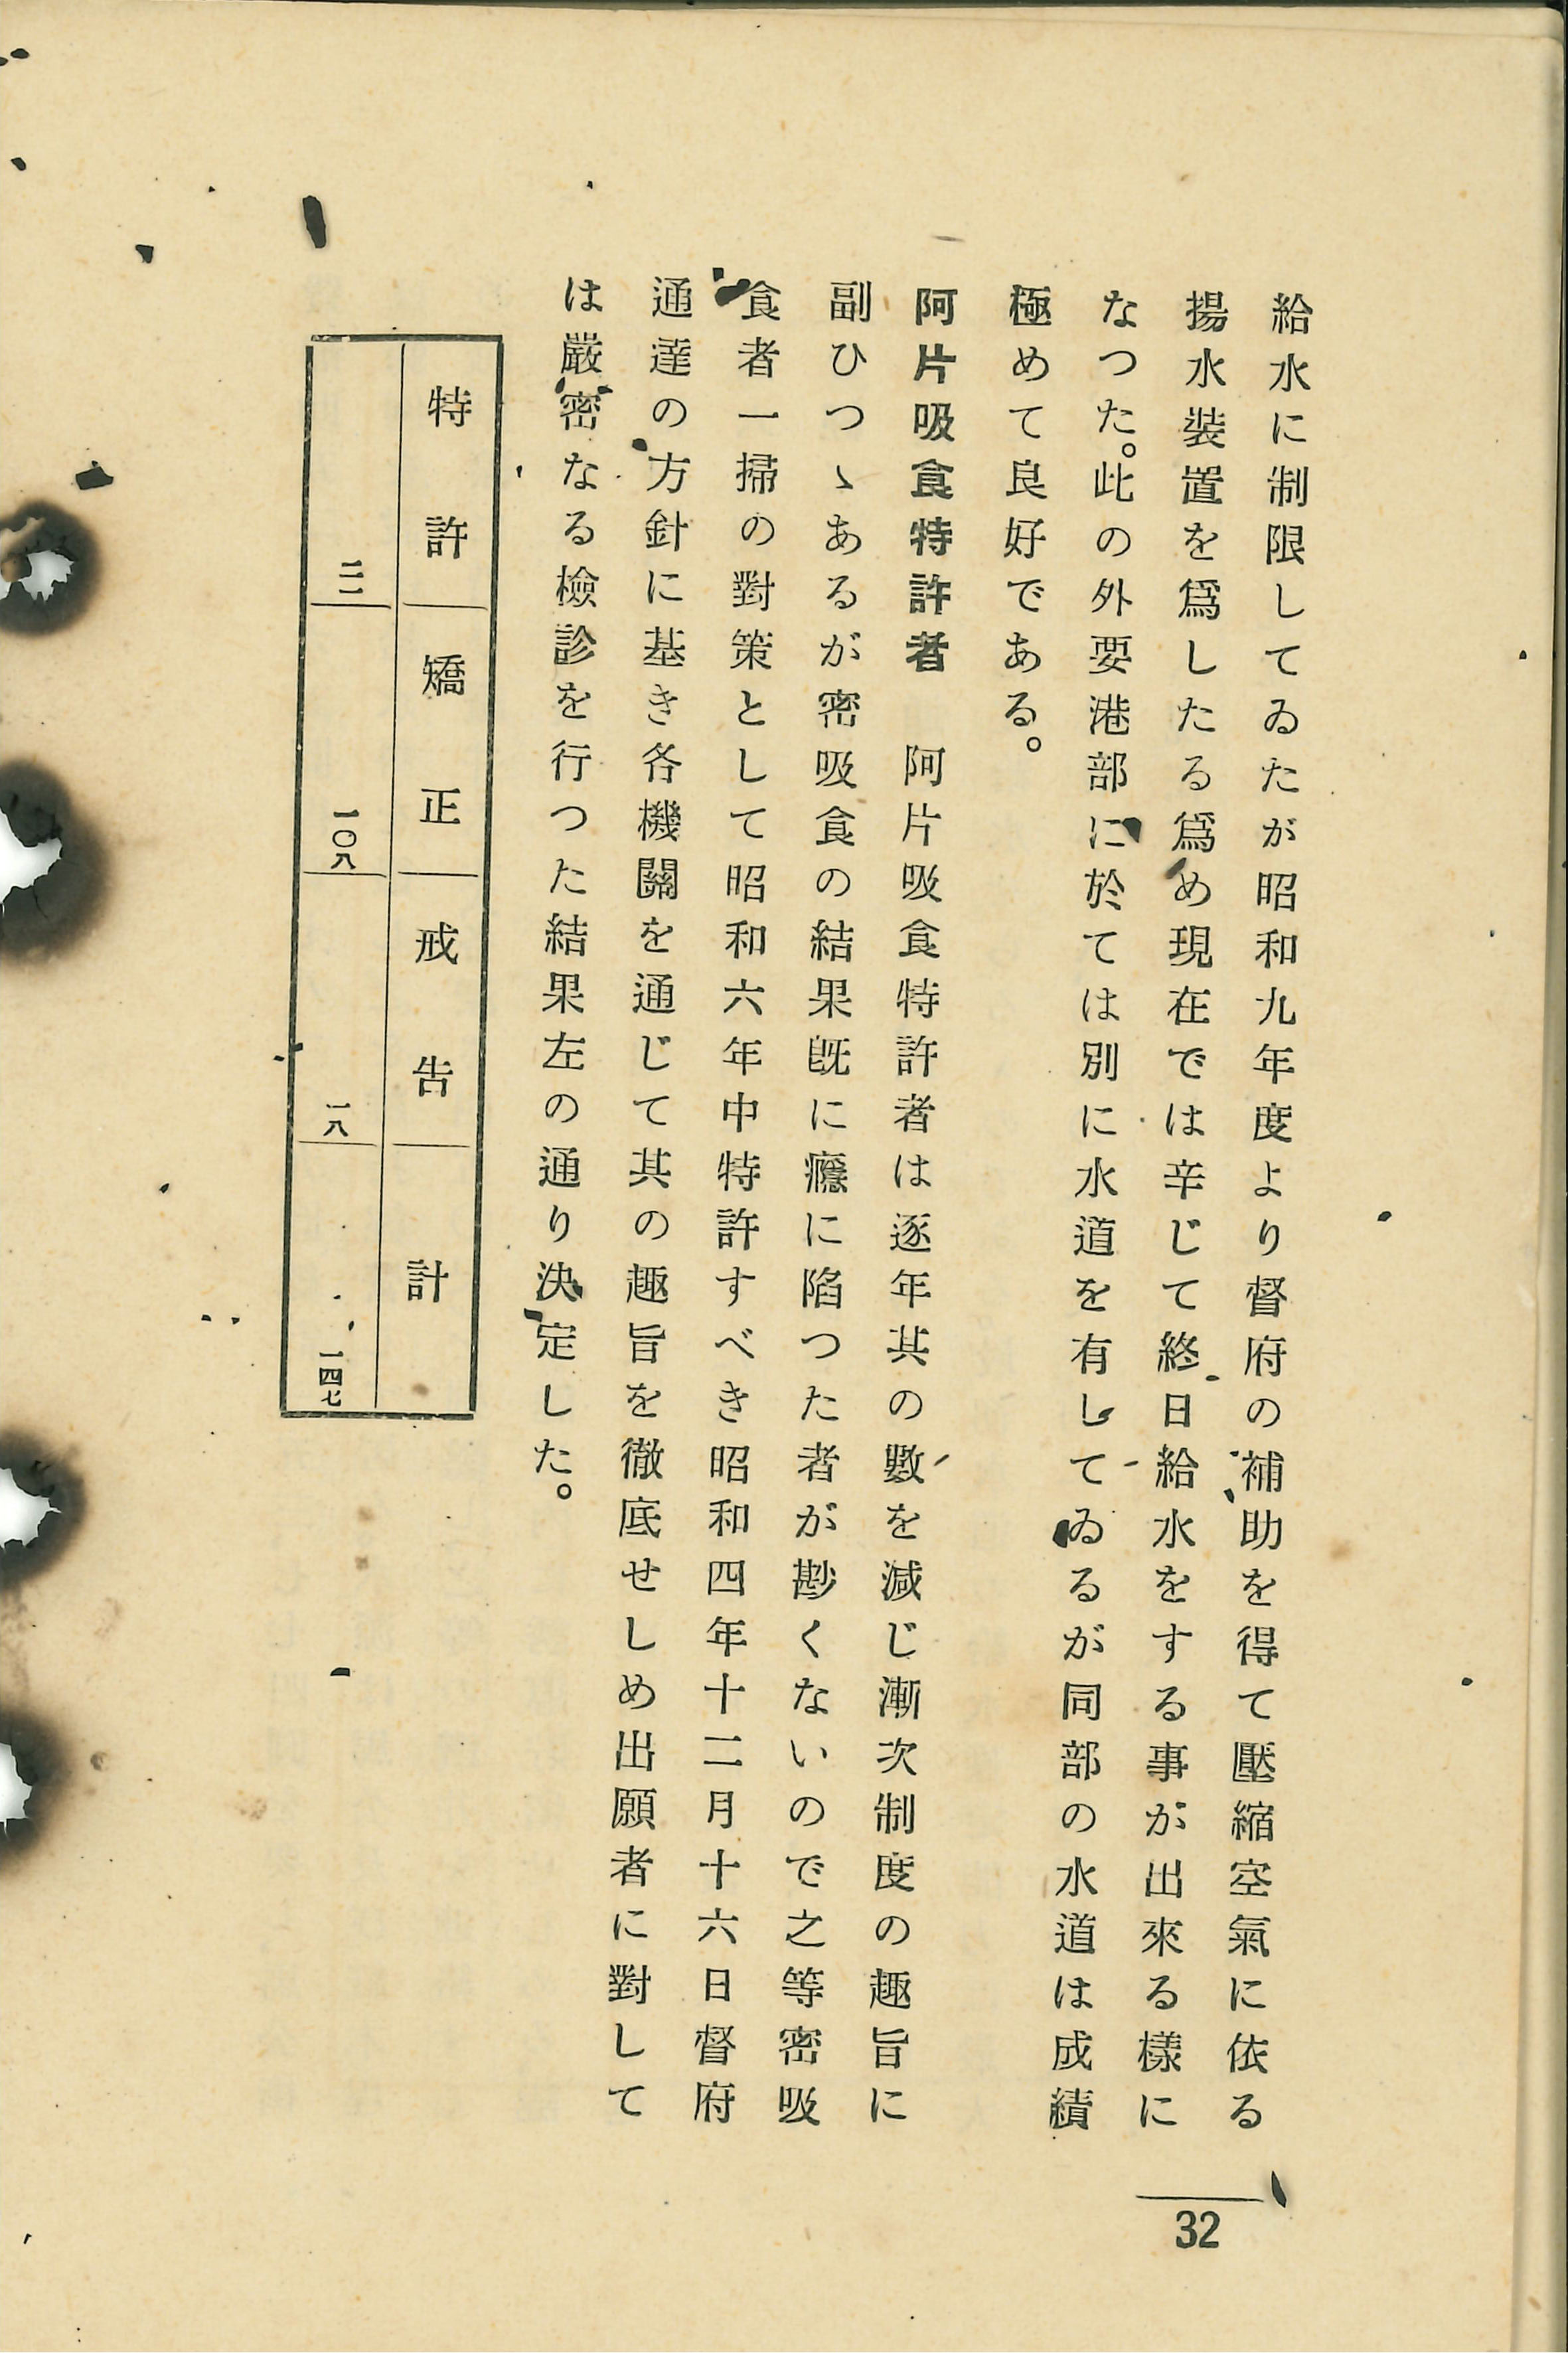 給水に制限してゐたが昭和九年度より督府の補助を得て壓縮空氣に依る
揚水装置を爲したる爲め現在では辛じて終日給水をする事が出來る樣に
なつた。此の外要港部に於ては別に水道を有してゐるが同部の水道は成績
極めて良好である。
阿片吸食特許者　阿片吸食特許者は逐年其の數を減じ漸次制度の趣旨に
副ひつゝあるが密吸食の結果既に癮に陷つた者が尠くないので之等密吸
食者一掃の對策として昭和六年中特許すべき昭和四年十二月十六日督府
通達の方針に基き各機關を通じて其の趣旨を徹底せしめ出願者に對して
は嚴密なる檢診を行つた結果左の通り決定した。
特許　矯正　戒告　計
二一　一〇八　一八　一四七
32